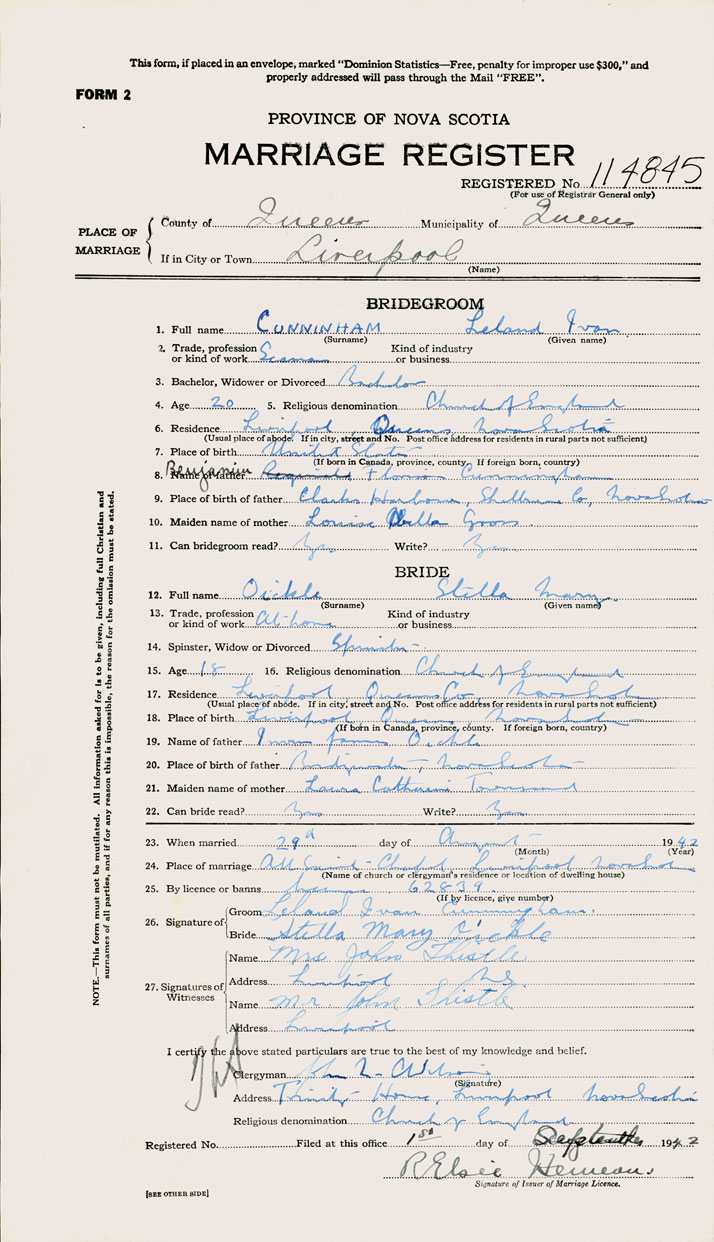 This form, if placed in an envelope, marked "Dominion Statistics—Free, penalty for improper use $300," and
properly addressed will pass through the Mail "FREE".
FORM 2
PROVINCE OF NOVA SCOTIA
MARRIAGE REGISTER
REGISTERED No. 114845
(For use of Registrar General only)
PLACE OF MARRIAGE
County of Queens Municipality of Queens
If in City or Town Liverpool
(Name)
BRIDEGROOM
1. Full name CUNNINHAM Leland Ivan
(Surname) (Given name)
2. Trade, profession or kind of work Seaman Kind of industry or business
3. Bachelor, Widower or Divorced Bachelor
4. Age 20 5. Religious denomination Church of England
6. Residence Liverpool, Queens, Nova Scotia
(Usual place of abode. If in city, street and No. Post office address for residents in rural parts not sufficient)
7. Place of birth United States
(If born in Canada, province, county. If foreign born, country)
8. Name of father Benjamin Cunningham
9. Place of birth of father Clarks Harbour, Shelburne Co, Nova Scotia
10. Maiden name of mother Louise Gross
11. Can bridegroom read? Yes Write? Yes
BRIDE
12. Full name Oickle Stella Mary
(Surname) (Given name)
13. Trade, profession or kind of work At-home Kind of industry or business
14. Spinster, Widow or Divorced Spinster
15. Age 18 16. Religious denomination Church of England
17. Residence Liverpool, Queens Co, Nova Scotia
(Usual place of abode. If in city, street and No. Post office address for residents in rural parts not sufficient)
18. Place of birth Liverpool Queens Nova Scotia
(If born in Canada, province, county. If foreign born, country)
19. Name of father James Oickle
20. Place of birth of father Bridgewater, Nova Scotia
21. Maiden name of mother Laura Catherine Townsend
22. Can bride read? Yes Write? Yes
23. When married 29th day of August 1942
(Month) (Year)
24. Place of marriage All Saint- Chapel, Liverpool Nova Scotia
(Name of church or clergyman's residence or location of dwelling house)
25. By licence or banns license 62839
(If by licence, give number)
26. Signature of
Groom Leland Ivan Cunningham.
Bride Stella Mary Oickle
27. Signatures of Witnesses
Name Mrs John Thistle
Address Liverpool N.S.
Name Mr. John Thistle
Address Liverpool
I certify the above stated particulars are true to the best of my knowledge and belief.
Clergyman John Wilson
(Signature)
Address Trinity House, Liverpool Nova Scotia
Religious denomination Church of England
Registered No. Filed at this office 1st day of September 1942
R Elsie Hemeon
Signature of Issuer of Marriage Licence.
[SEE OTHER SIDE]
NOTE.—This form must not be mutilated. All information asked for is to be given, including full Christian and
surnames of all parties, and if for any reason this is impossible, the reason for the omission must be stated.